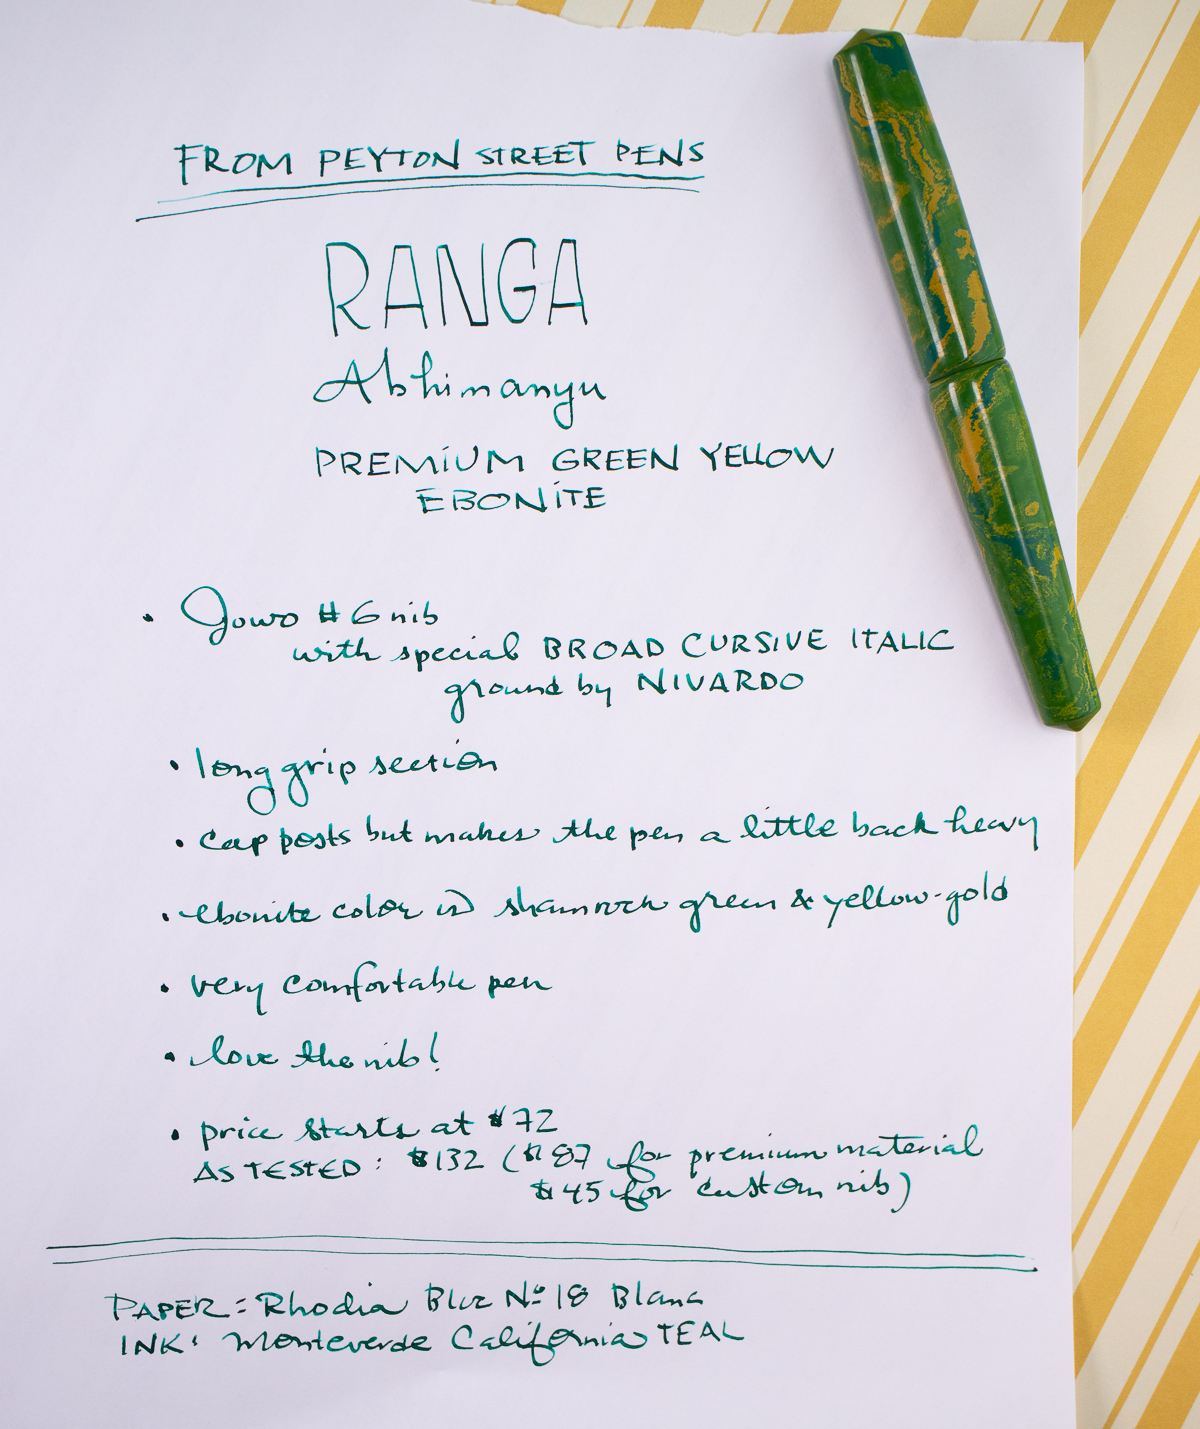 FROM PEYTON STREET PENS
RANGA
Abhimanyu
PREMIUM GREEN YELLOW
EBONITE
• Jowo #6 nib
with special BROAD CURSIVE ITALIC
ground by NIVARDO
• long grip section
• cap posts but makes the pen a little back heavy
• ebonite color is shamrock green & yellow-gold
• very comfortable pen
• love the nib!
• price starts at $72
AS TESTED: $132 ($87 for premium material
$45 for custom nib)
PAPER: Rhodia Bloc No 18 Blanc
INK: Monteverde California TEAL